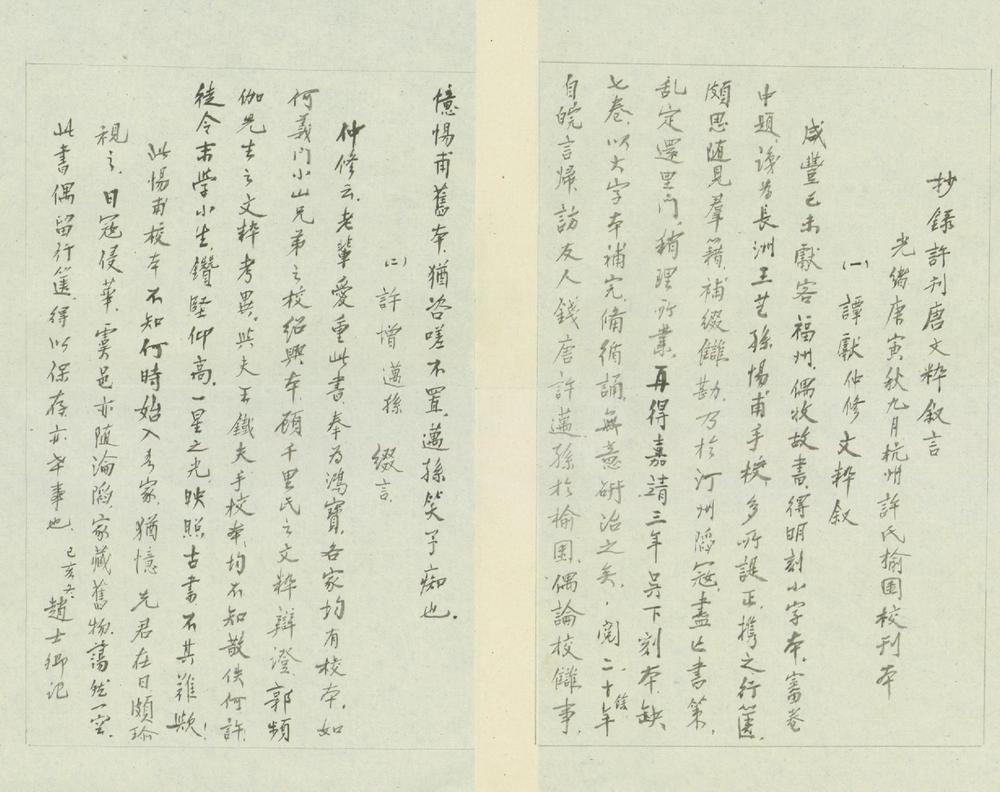 抄錄許刊唐文粹叙言
光緒庚寅秋九月杭州許氏榆園校刊本
(一) 譚獻仲修文粹叙
咸豐己未獻客福州,偶收故書,得明刻小字本,審卷
中題,識為長洲王芑孫惕甫手校,多所諟正,攜之行篋,
頗思隨見羣籍,補綴讎勘,乃於汀州陷寇,盡亡書策,
乱定還里門,稍理所業,再得嘉靖三年吳下刻本,缺
七卷,以大字本補完,循誦,無意研治之矣,閱二十餘年
自皖言歸,訪友人錢唐許邁孫於榆園,偶論校讎事,
憶惕甫舊本,猶咨嗟不置,邁孫笑予痴也.
(二) 許增邁孫 綴言
仲修云,老輩愛重此書,奉為鴻寶,各家均有校本,如
何義门小山兄弟之校紹興本,顧千里氏之文粹辯證,郭頻
伽先生之文粹考異,與夫王鐵夫手校本,均不知散佚何許,
徒令末學小生,鑽堅仰高,一星之光,映照古書,不其難歟!
此惕甫校本不知何時始入吾家,猶憶 先君在日頗珍
視之,日寇侵華,虞邑亦随淪陷,家藏舊物,蕩然一空,
此書偶留行篋,得以保存亦幸事也,己亥冬趙士卿记